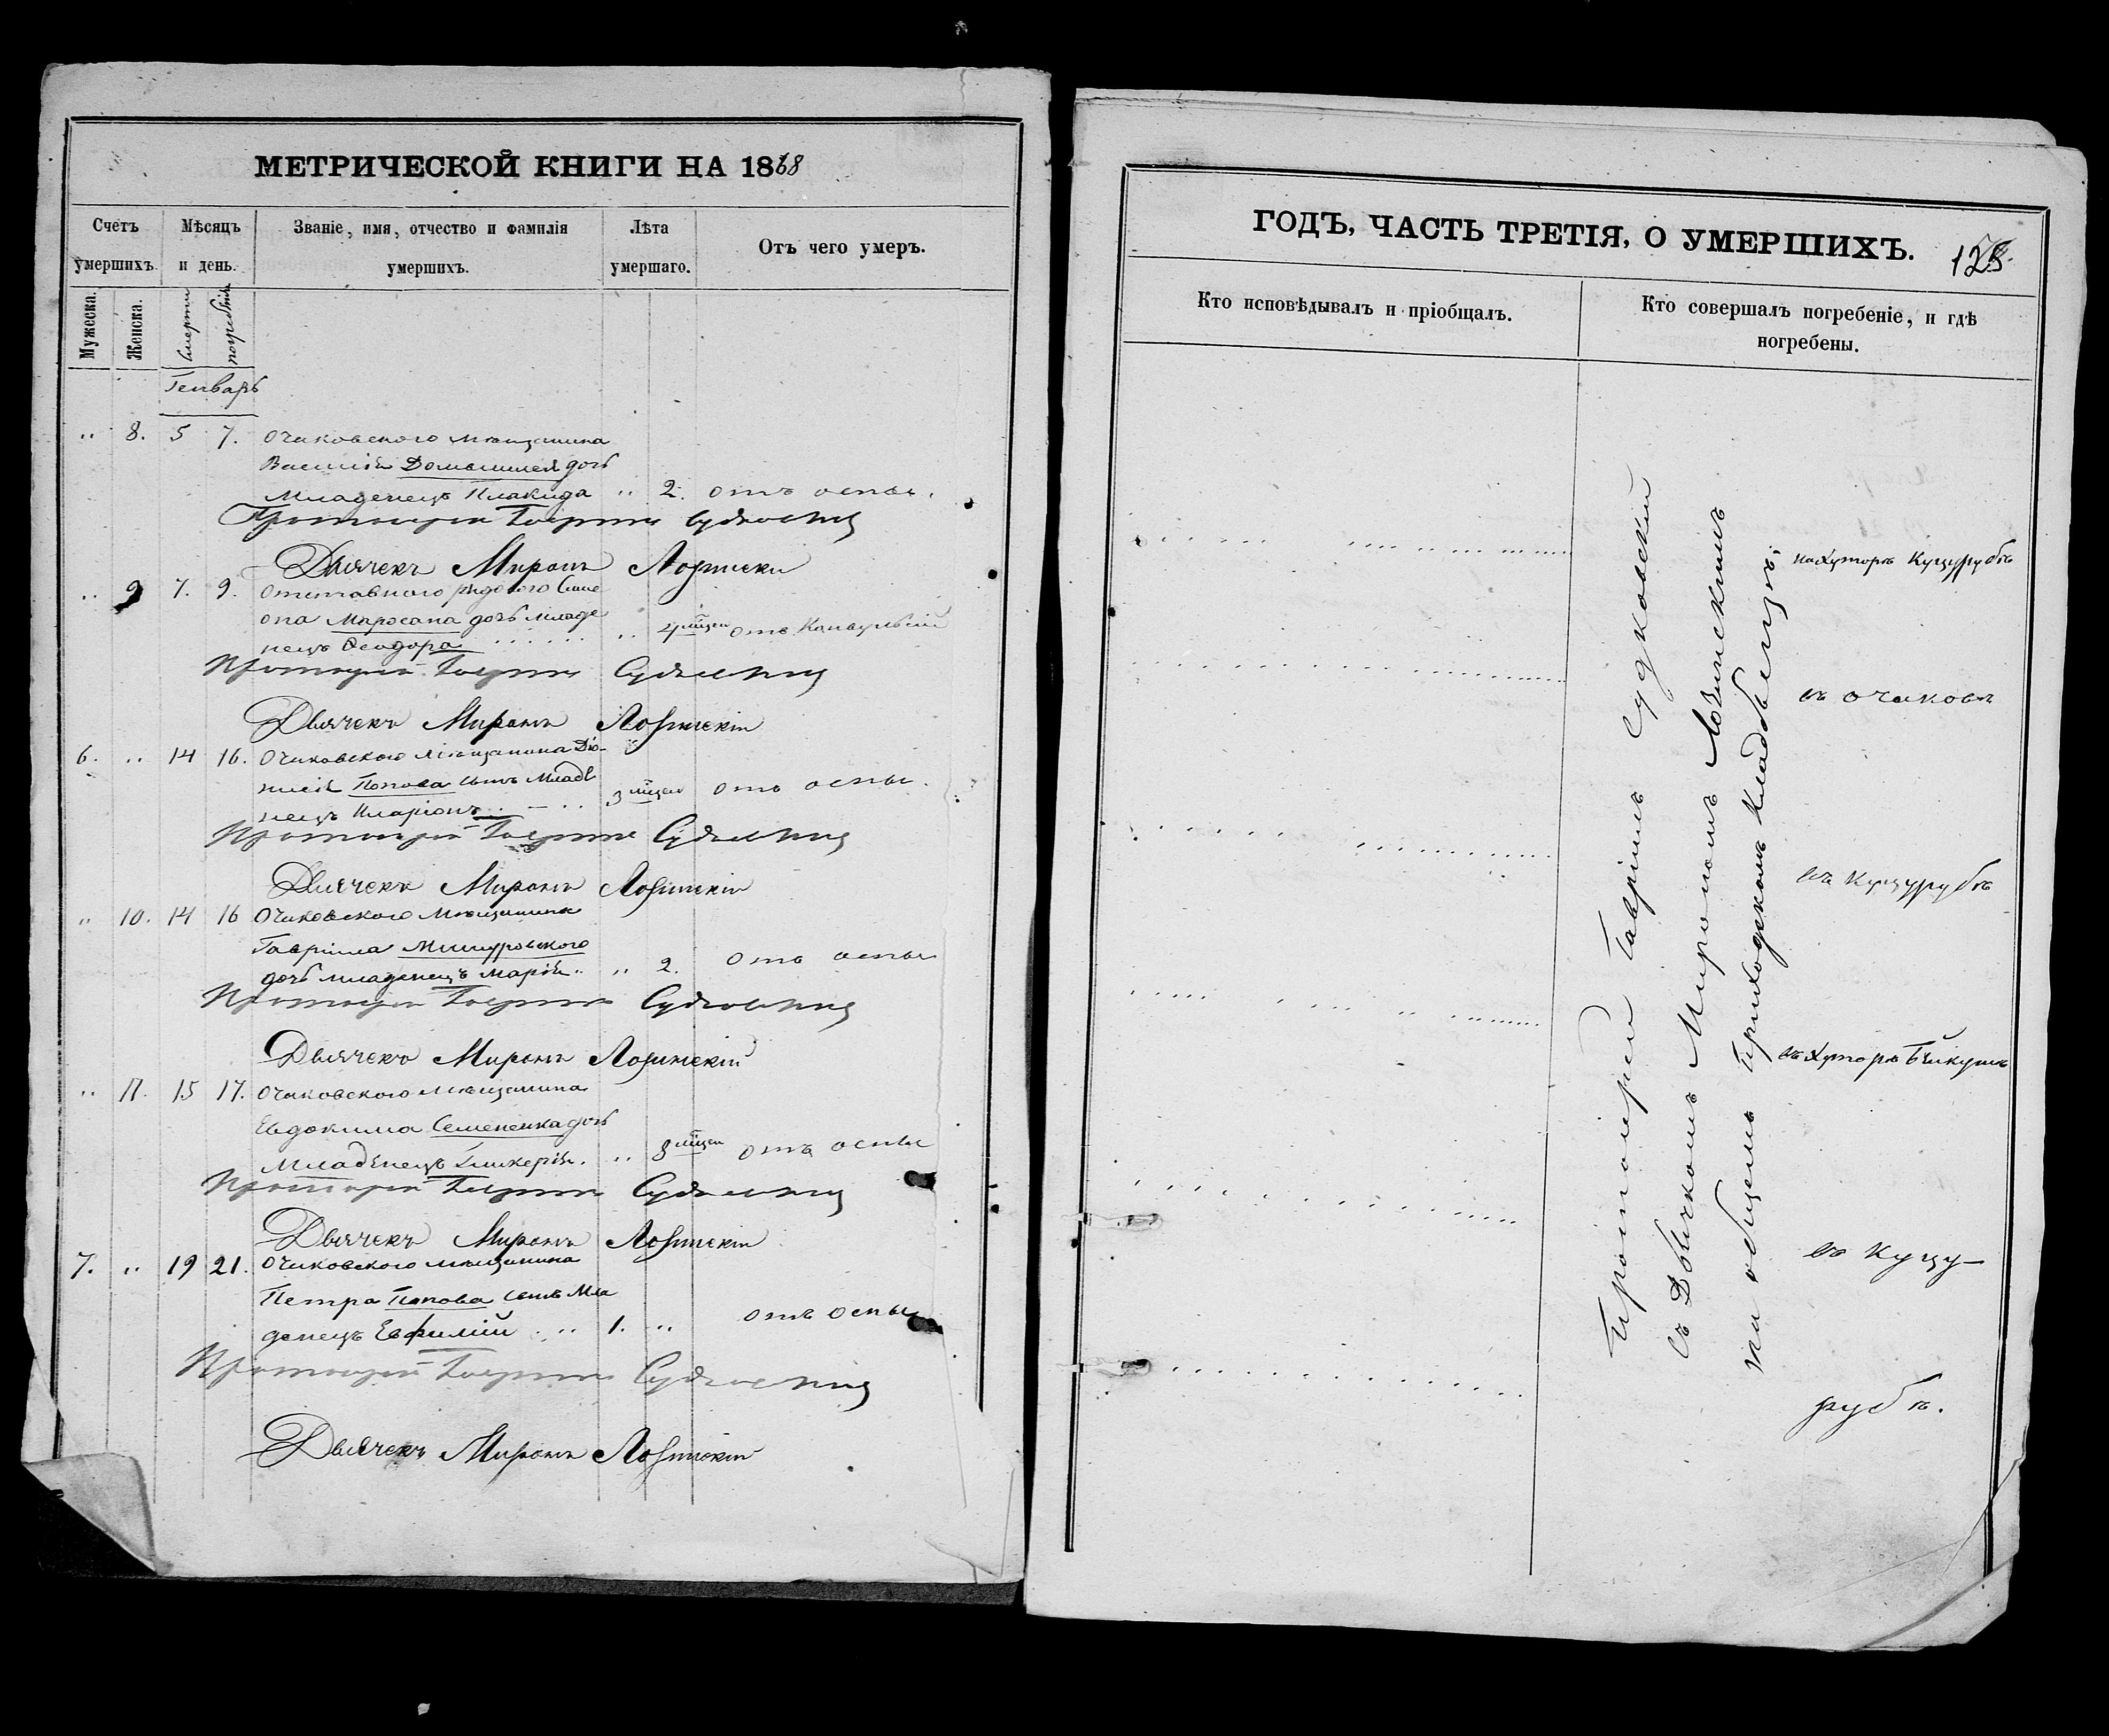 МЕТРИЧЕСКОЙ КНИГИ НА 1868
Счетъ умершихъ.
Мѣсяцъ и день.
Званіе, имя, отчество и фамилія умершихъ.
Лѣта умершаго.
Отъ чего умеръ.
Мужеска.
Женска.
Смерти
погребенія
Генварь
„ 8. 5 7. Очаковскаго мѣщанина
Василія дочь
Младенецъ „ 2. отъ оспы.
Протоіерей Гавріилъ Судковскій
Дьячекъ Миронъ Лозинскій
„ 9 7. 9. Отставнаго рядового Симе
она Маросана дочь младе
нецъ Ѳеодора „ 4 мѣсяц отъ Конвульсій
Протоіерей Гавріилъ Судковскій
Дьячекъ Миронъ Лозинскій
6. „ 14 16. Очаковскаго мѣщанина Діо-
нисія Попова сынъ Младе
нецъ Иларіонъ 3 мѣсяц отъ оспы.
Протоіерей Гавріилъ Судковскій
Дьячекъ Миронъ Лозинскій
„ 10. 14 16 Очаковскаго мѣщанина
Гавріила
дочь младенецъ Марія „ 2. отъ оспы
Протоіерей Гавріилъ Судковскій
Дьячекъ Миронъ Лозинскій
„ 11. 15 17. Очаковскаго мѣщанина
Евдокима Семененка дочь
Младенецъ Гликерія. „ 8 мѣсяц отъ оспы
Протоіерей Гавріилъ Судковскій
Дьячекъ Миронъ Лозинскій
7. „ 19 21. Очаковскаго мѣщанина
Петра Попова сынъ Мла
денецъ Евфимій 1. „ отъ оспы
Протоіерей Гавріилъ Судковскій
Дьячекъ Миронъ Лозинскій
ГОДЪ, ЧАСТЬ ТРЕТІЯ, О УМЕРШИХЪ.
Кто исповѣдывалъ и пріобщалъ.
Кто совершалъ погребеніе, и гдѣ
погребены.
Протоіерей Гавріилъ Судковскій
съ Дьячкомъ Мирономъ Лозинскимъ
на общемъ приходскомъ кладбищѣ:
на Хуторѣ Куцурубѣ
въ Очаковѣ
въ Куцурубѣ
въ Хуторѣ Бейкушѣ
въ Куцу-
рубѣ.